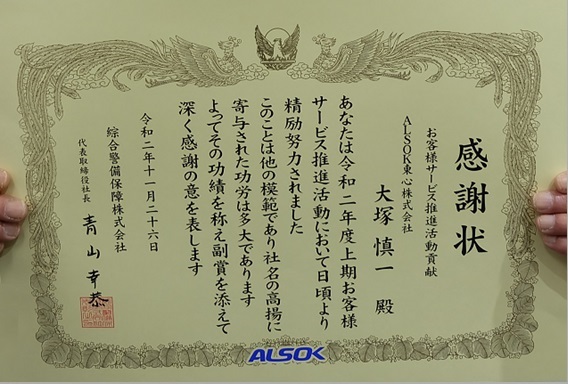 感謝状
お客様サービス推進活動貢献
ALSOK東心株式会社
大塚慎一 殿
あなたは令和二年度上期お客様
サービス推進活動において日頃より
精励努力されました
このことは他の模範であり社名の高揚に
寄与された功労は多大であります
よってその功績を称え副賞を添えて
深く感謝の意を表します
令和二年十一月二十六日
綜合警備保障株式会社
代表取締役社長 青山幸恭
ALSOK